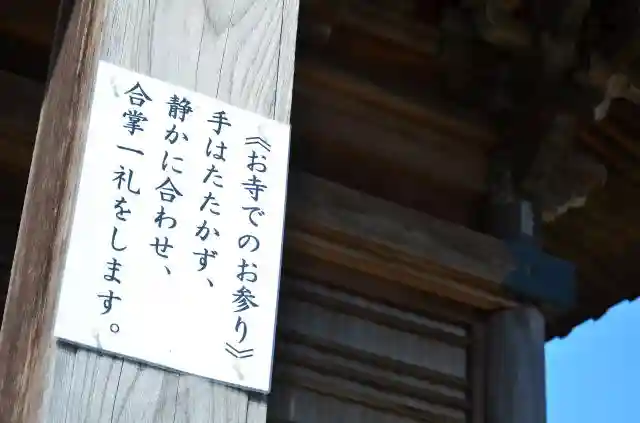 《お寺でのお参り》
手はたたかず、
静かに合わせ、
合掌一礼をします。